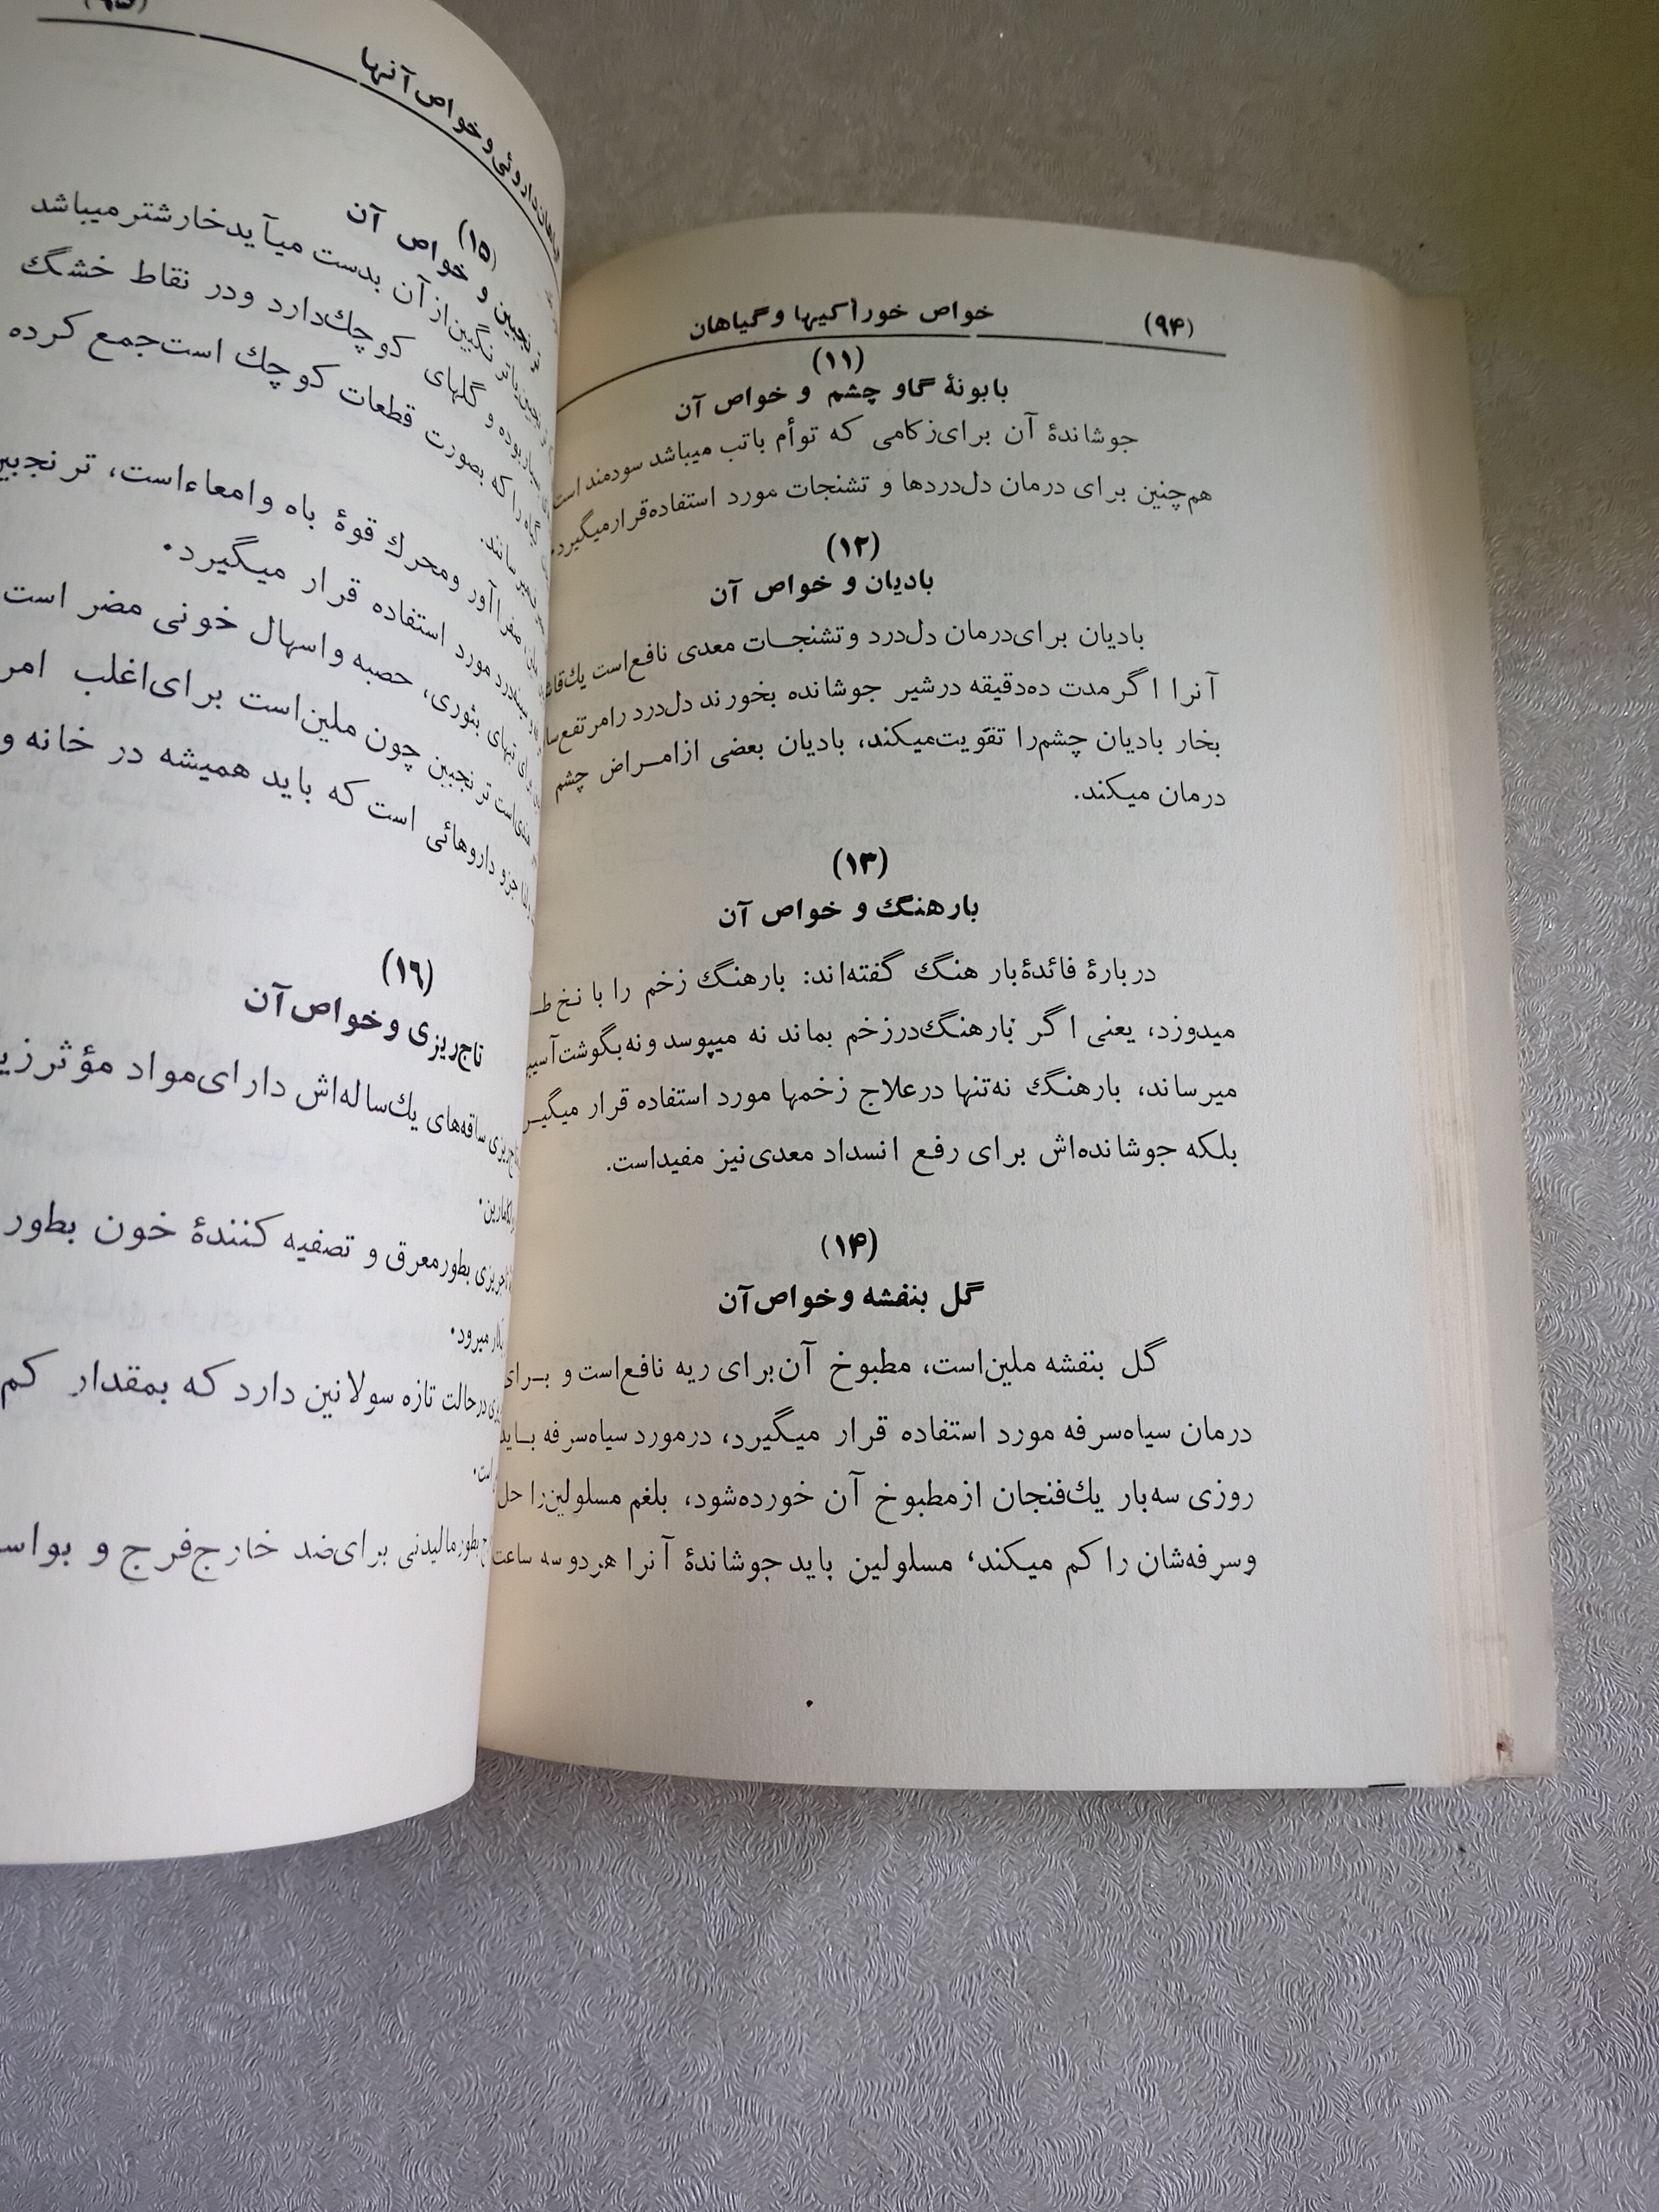 (۹۴)
خواص خوراکیها وگیاهان
(۱۱)
بابونهٔ گاو چشم و خواص آن
جوشاندهٔ آن برای‌زکامی که توأم باتب میباشد سودمند است
هم‌چنین برای درمان دل‌دردها و تشنجات مورد استفاده‌قرارمیگیرد.
(۱۲)
بادیان و خواص آن
بادیان برای‌درمان دل‌درد وتشنجـات معدی نافع‌است یك‌قاشق
آنرا اگرمدت ده‌دقیقه درشیر جوشانده بخورند دل‌درد رامرتفع
بخار بادیان چشم‌را تقویت‌میکند، بادیان بعضی ازامـراض چشم
درمان میکند.
(۱۳)
بارهنگ و خواص آن
دربارهٔ فائدهٔ‌بار هنگ گفته‌اند: بارهنگ زخم را با نخ
میدوزد، یعنی اگر بارهنگ‌درزخم بماند نه میپوسد ونه‌بگوشت
میرساند، بارهنگ نه‌تنها درعلاج زخمها مورد استفاده قرار
بلکه جوشانده‌اش برای رفع انسداد معدی‌نیز مفیداست.
(۱۴)
گل بنفشه وخواص‌آن
گل بنفشه ملین‌است، مطبوخ آن‌برای ریه نافع‌است و بـرای
درمان سیاه‌سرفه مورد استفاده قرار میگیرد، درمورد سیاه‌سرفه بـاید
روزی سه‌بار یك‌فنجان ازمطبوخ آن خورده‌شود، بلغم مسلولین‌را حل
وسرفه‌شان را کم میکند، مسلولین باید جوشاندهٔ آنرا هردو سه ساعت
(۹۵)
داروئی وخواص آنها
(۱۵)
ترنجبین و خواص آن
آن بدست میآید خارشترمیباشد
بوده و گلهای کوچك‌دارد ودر نقاط خشگ
را که بصورت قطعات کوچك است‌جمع کرده
آور ومحرك قوهٔ باه وامعاءاست، ترنجبین
مورد استفاده قرار میگیرد.
تبهای بثوری، حصبه واسهال خونی مضر است
ترنجبین چون ملین‌است برای‌اغلب
جزو داروهائی است که باید همیشه در خانه و
(۱۶)
تاجریزی وخواص‌آن
ساقه‌های یك‌ساله‌اش دارای‌مواد مؤثر
بطورمعرق و تصفیه کنندهٔ خون بطور
میرود.
درحالت تازه سولانین دارد که بمقدار کم
است.
بطورمالیدنی برای‌ضد خارج‌فرج و